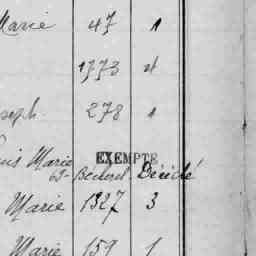 Marie 47 1
1773 4
seph. 278 1
uis Marie EXEMPTE
Décédé
Marie 1327 3
Marie 159 1